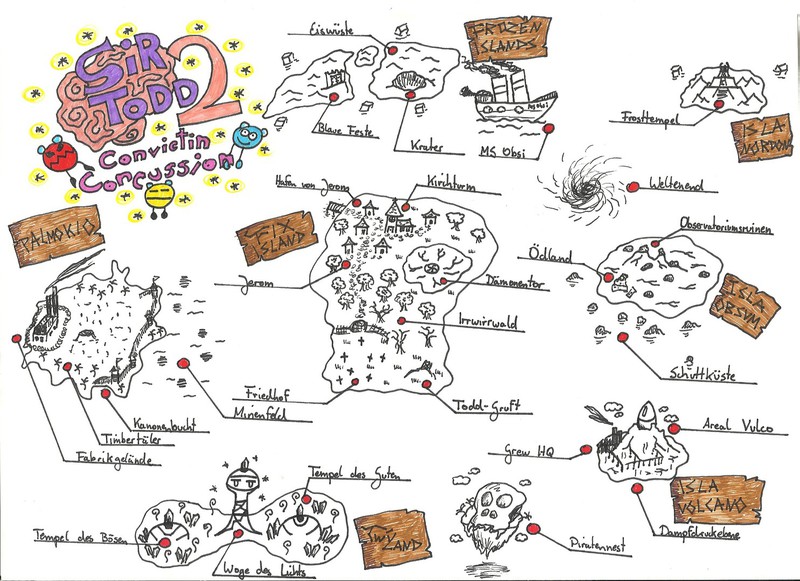 SiR
TODD 2
Convictin
Concussion
Eiswüste
FROZEN
ISLANDS
Blaue Feste
Krater
MS Obsi
MS Obsi
Frosttempel
ISLA
NORDON
Hafen von Jerom
Kirchturm
Weltenend
PALMOKLO
FIX
ISLAND
Observatoriumsruinen
Ödland
Jerom
Dämonentor
Irrwirrwald
ISLA
OBSUM
Schuttküste
Friedhof
Minenfeld
Todd-Gruft
Kanonenbucht
Timbertäler
Fabrikgelände
Areal Vulco
Grew HQ
ISLA
VOLCANO
Dampfdruckebene
Tempel des Guten
Tempel des Bösen
Woge des Lichts
TWY
LAND
Piratennest